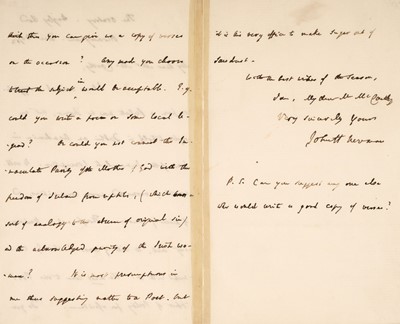 think this you can give us a copy of verses
on the occasion? Any mode you choose
to treat the subject in would be acceptable. E.g.
could you write a poem on some local le-
gend? Or could you not connect the Im-
maculate Purity of the Mother of God with the
freedom of Ireland from reptiles, (which bears a
sort of analogy to the absence of original sin)
and the acknowledged purity of the Irish wo-
-men? It is not presumptuous in
me thus suggesting matter to a Poet, but
it is his very office to make sugar out of
saw dust -
With the best wishes of the Season,
I am, My dear Mr McCarthy
Very sincerely Yours
John H Newman
P.S. Can you suggest any one else
who would write a good copy of verses?